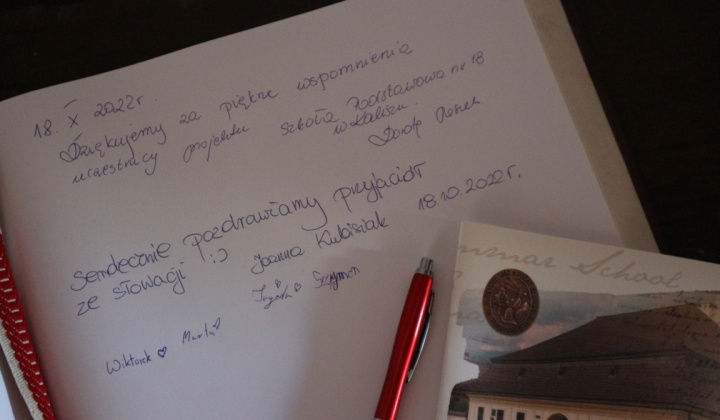 18. X 2022r.
Dziękujemy za piękne wspomnienia
uczestnicy projektu Szkoła Podstawowa nr 18
w Kaliszu.
Serdecznie pozdrawiamy przyjaciół
ze słowacji :)
Joanna Kubisiak 18.10.2022r.
Szymon
Wiktorek ♡ Marta
mmar School